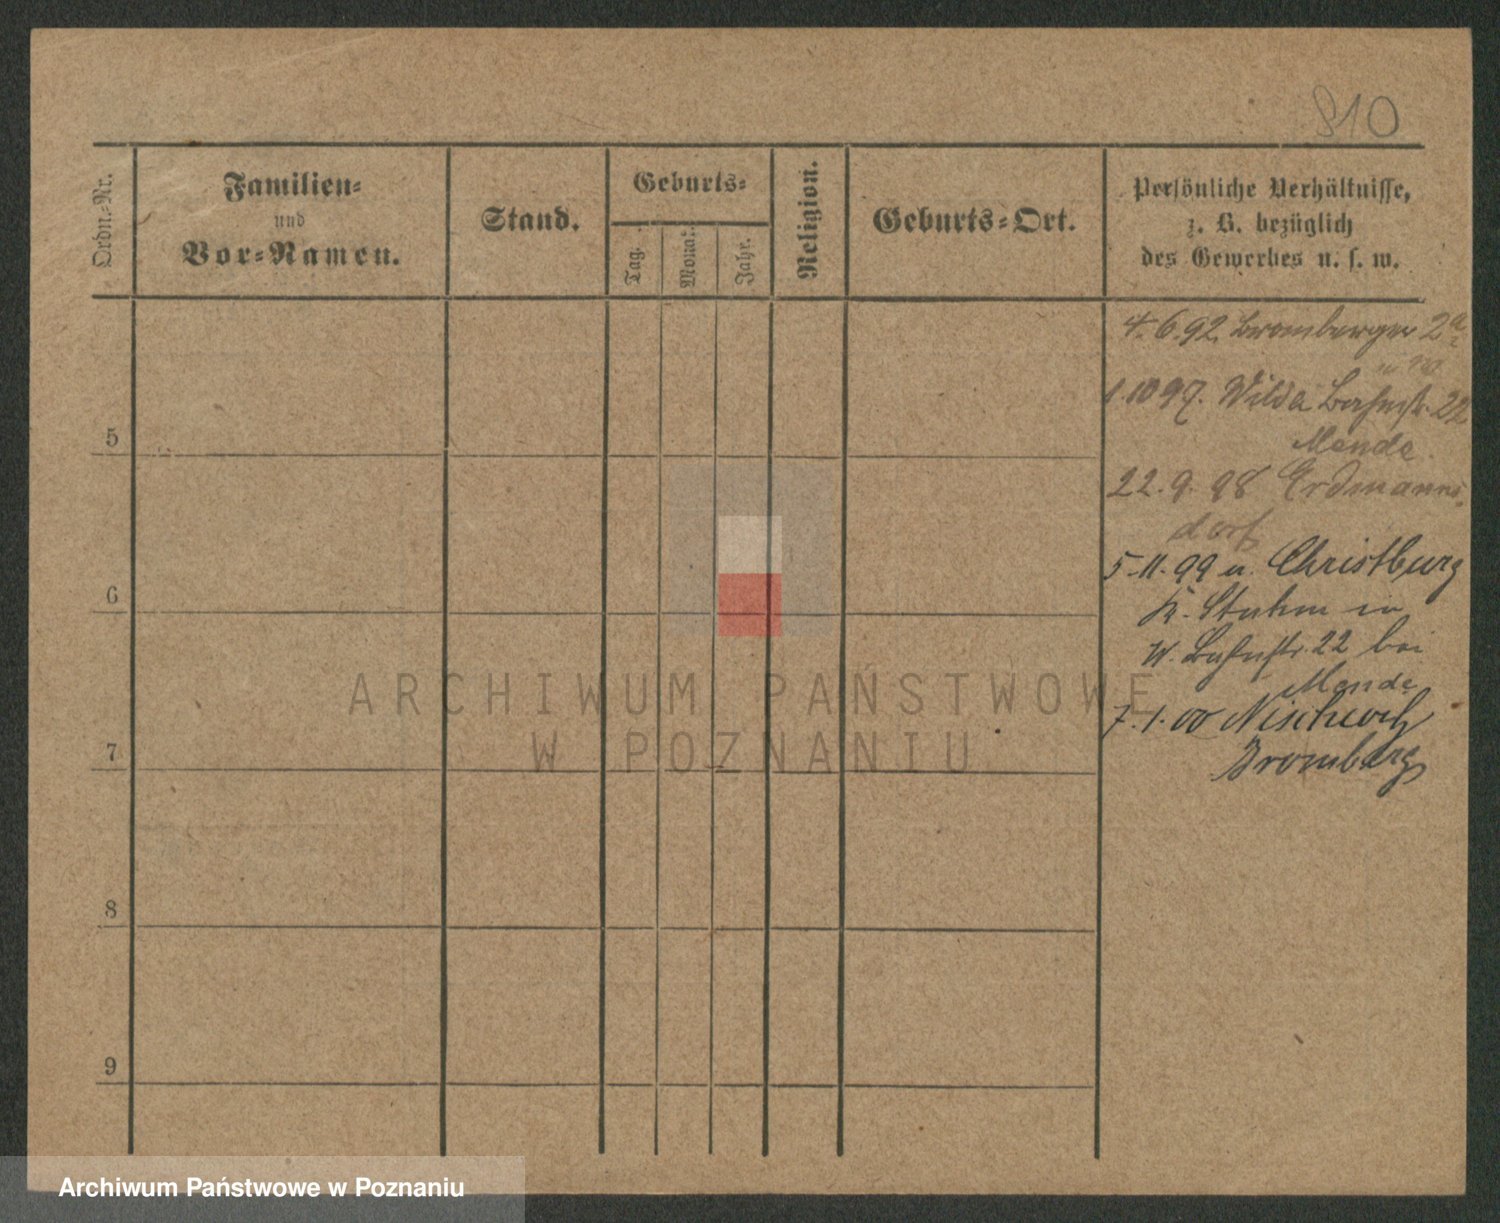 810
Ordn.-Nr.
Familien-
und
Vor-Namen.
Stand.
Geburts-
Tag.
Monat.
Jahr.
Religion.
Geburts-Ort.
Persönliche Verhältnisse,
z. B. bezüglich
des Gewerbes u. s. w.
4.6.92. Bromberger 2a
1.10 97. Wilda Bahnstr. 22
Mende.
22.9.98 Erdmanns
dorf
5.11.99 u. Christburg
Kr. Stuhm in
W. Bahnstr. 22 bei
Mende
7.1.00
Bromberg
5
6
7
8
9
ARCHIWUM PAŃSTWOWE
W POZNANIU
Archiwum Państwowe w Poznaniu